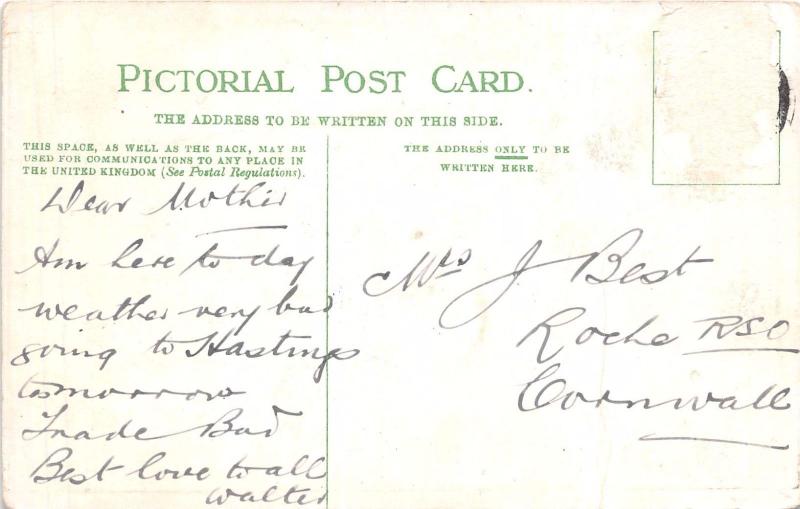 PICTORIAL POST CARD.
THE ADDRESS TO BE WRITTEN ON THIS SIDE.
THIS SPACE, AS WELL AS THE BACK, MAY BE
USED FOR COMMUNICATIONS TO ANY PLACE IN
THE UNITED KINGDOM (See Postal Regulations).
Dear Mother
Am here to day
weather very bad
going to Hastings
tomorrow
Trade Bad
Best love to all
walter
THE ADDRESS ONLY TO BE
WRITTEN HERE.
Mrs J Best
Roche RSO
Cornwall